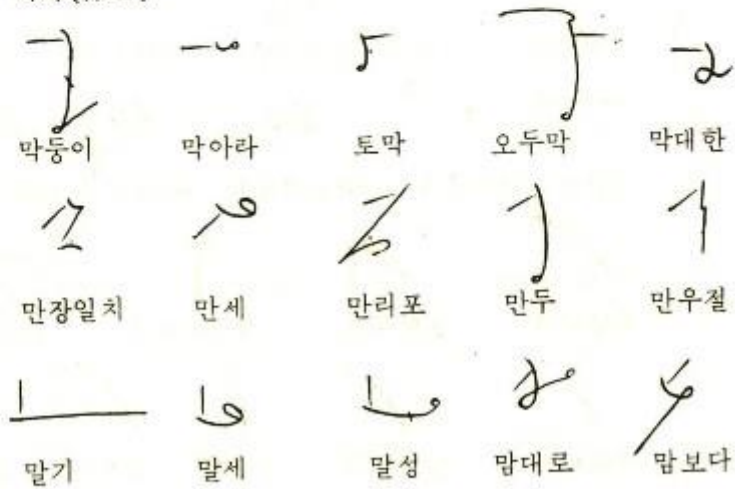 막둥이 막아라 토막 오두막 막대한
만장일치 만세 만리포 만두 만우절
말기 말세 말성 맘대로 맘보다